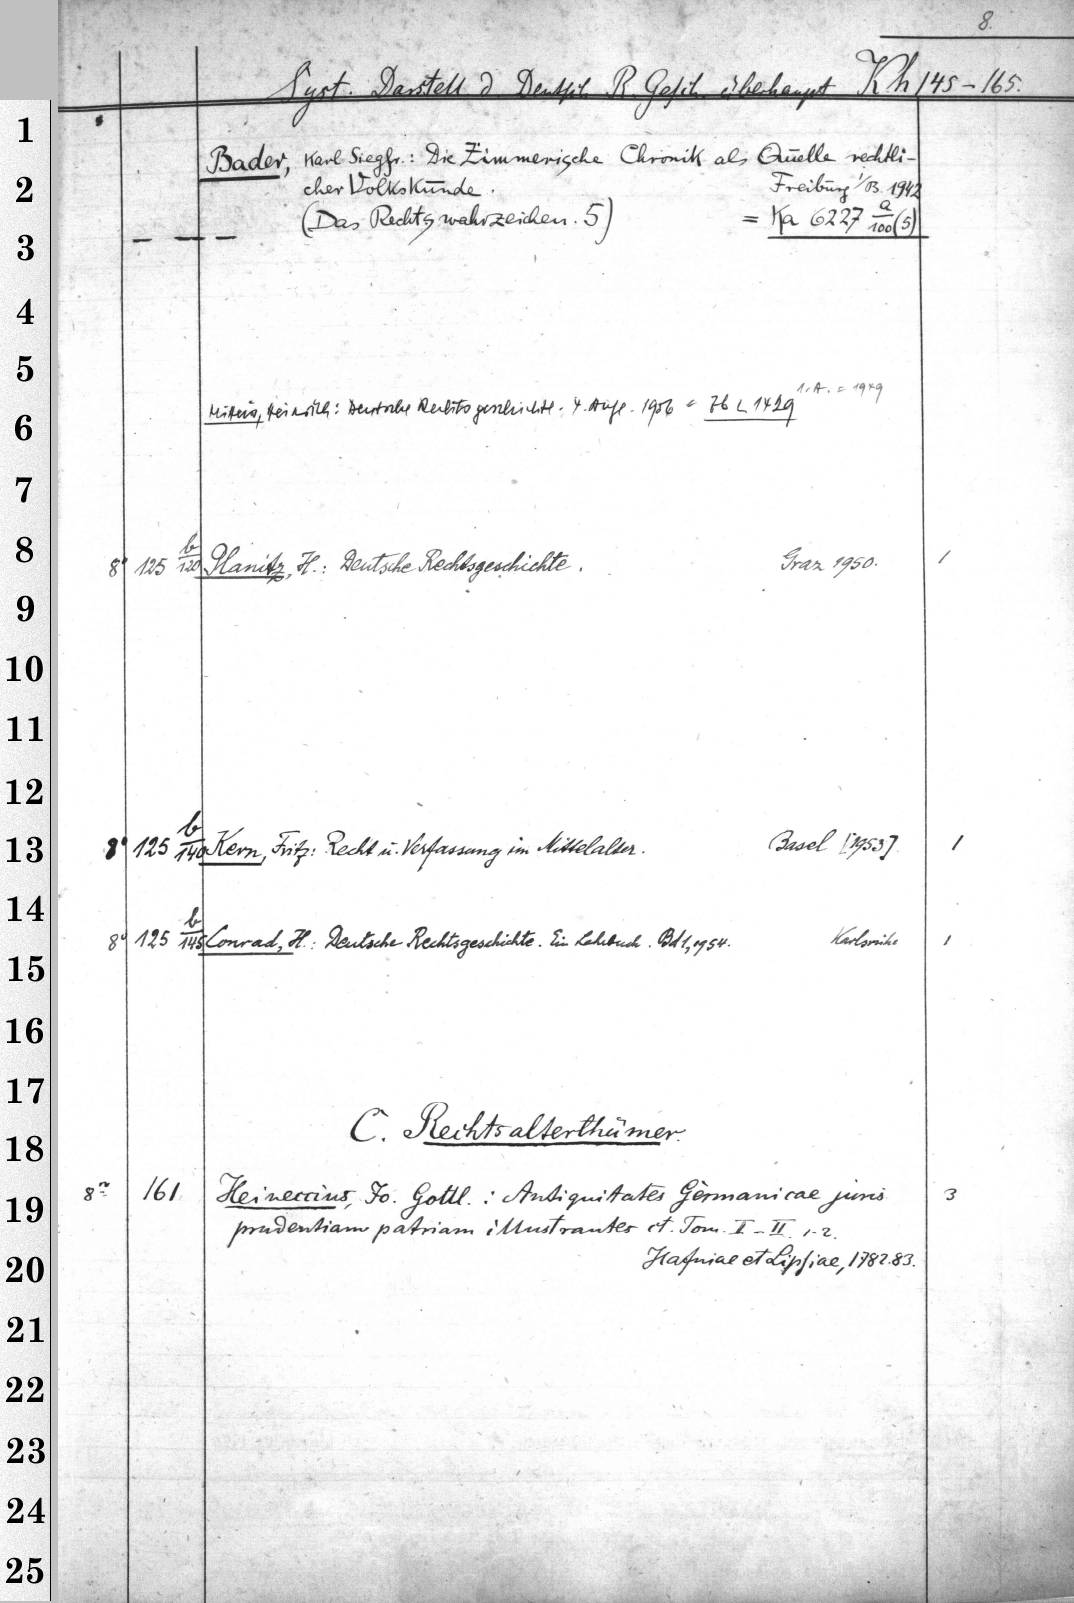 8.
Syst. Darstell d Deutsch R Gesch. überhaupt Kh 145-165.
Bader, Karl Siegfr.: Die Zimmerische Chronik als Quelle rechtli-
cher Volkskunde. Freiburg i/B. 1942
(Das Rechtswahrzeichen. 5) = Ka 6227 a/100 (5)
— — —
1. A. = 1949
Mitteis, Heinrich: Deutsche Rechtsgeschichte. 4. Aufl. 1956 = Jb L 1429
8° 125 b/120 Planitz, H.: Deutsche Rechtsgeschichte. Graz 1950. 1
8° 125 b/140 Kern, Fritz: Recht u. Verfassung im Mittelalter. Basel [1953]. 1
8° 125 b/145 Conrad, H.: Deutsche Rechtsgeschichte. Ein Lehrbuch. Bd 1, 1954. Karlsruhe 1
C. Rechtsalterthümer.
8° 161 Heineccius, Jo. Gottl.: Antiquitates Germanicae juris 3
prudentiam patriam illustrantes et. Tom. I-II. 1-2.
Hafniae et Lipsiae, 1782.83.
1
2
3
4
5
6
7
8
9
10
11
12
13
14
15
16
17
18
19
20
21
22
23
24
25